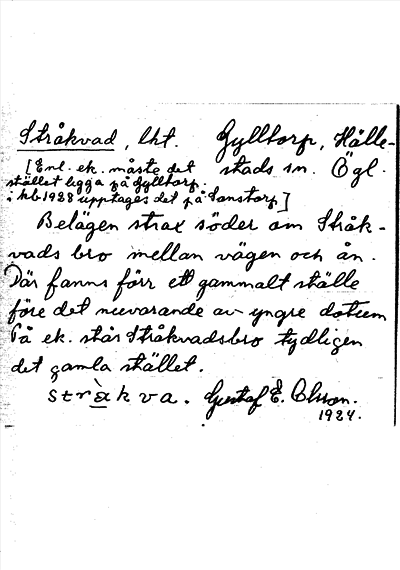 Stråkvad, lht. Gylltorp, Hälle-
[Enl. ek. måste det stads sn. Ögl.
stället ligga på Gylltorp.
i hb 1928 upptages det på Sanstorp]
Belägen strax söder om Stråk-
vads bro mellan vägen och ån.
Där fanns förr ett gammalt ställe
före det nuvarande av yngre datum
På ek. står Stråkvadsbro tydligen
det gamla stället.
stràkva. Gustaf E. Olsson.
1924.